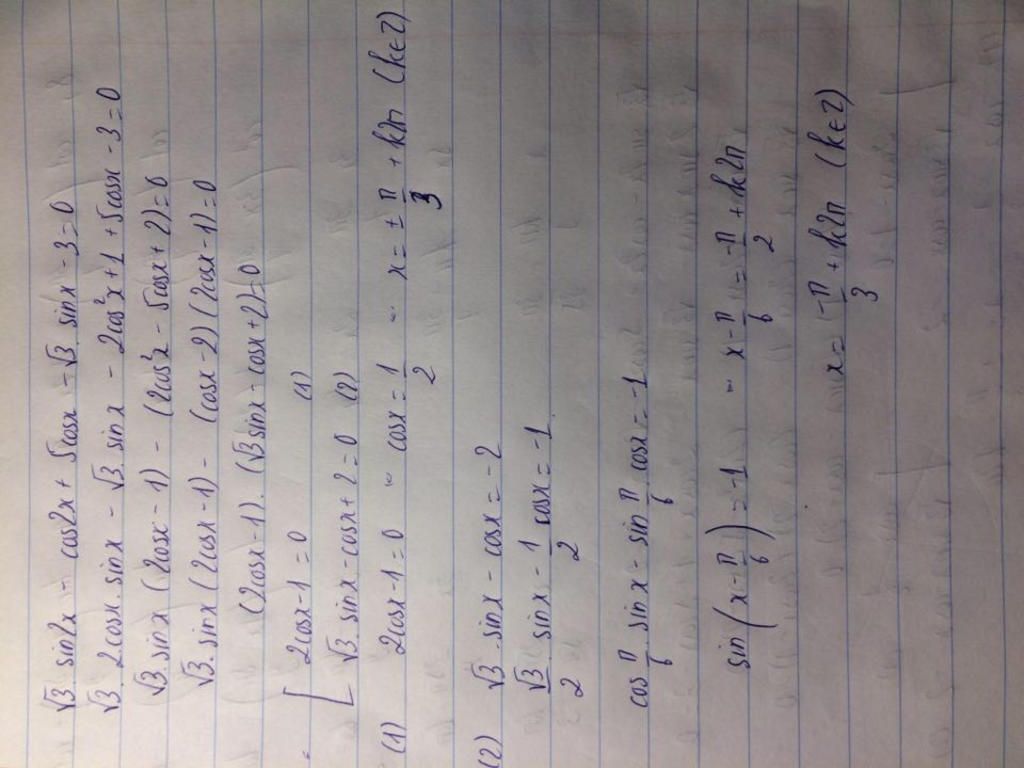 √3. sin2x - cos2x + 5cosx - √3. sinx - 3 = 0
√3. 2cosx. sinx - √3. sinx - 2cos²x + 1 + 5cosx - 3 = 0
√3. sinx (2cosx - 1) - (2cos²x - 5cosx + 2) = 0
√3. sinx (2cosx - 1) - (cosx - 2)(2cosx - 1) = 0
(2cosx - 1). (√3 sinx - cosx + 2) = 0
= [ 2cosx - 1 = 0 (1)
√3. sinx - cosx + 2 = 0 (2)
(1) 2cosx - 1 = 0 ~ cosx = 1/2 ~ x = ± π/3 + k2π (k∈Z)
(2) √3. sinx - cosx = -2
√3/2 sinx - 1/2 cosx = -1
cos π/6 sinx - sin π/6 cosx = -1
sin(x - π/6) = -1 ~ x - π/6 = -π/2 + k2π
x = -π/3 + k2π (k∈Z)